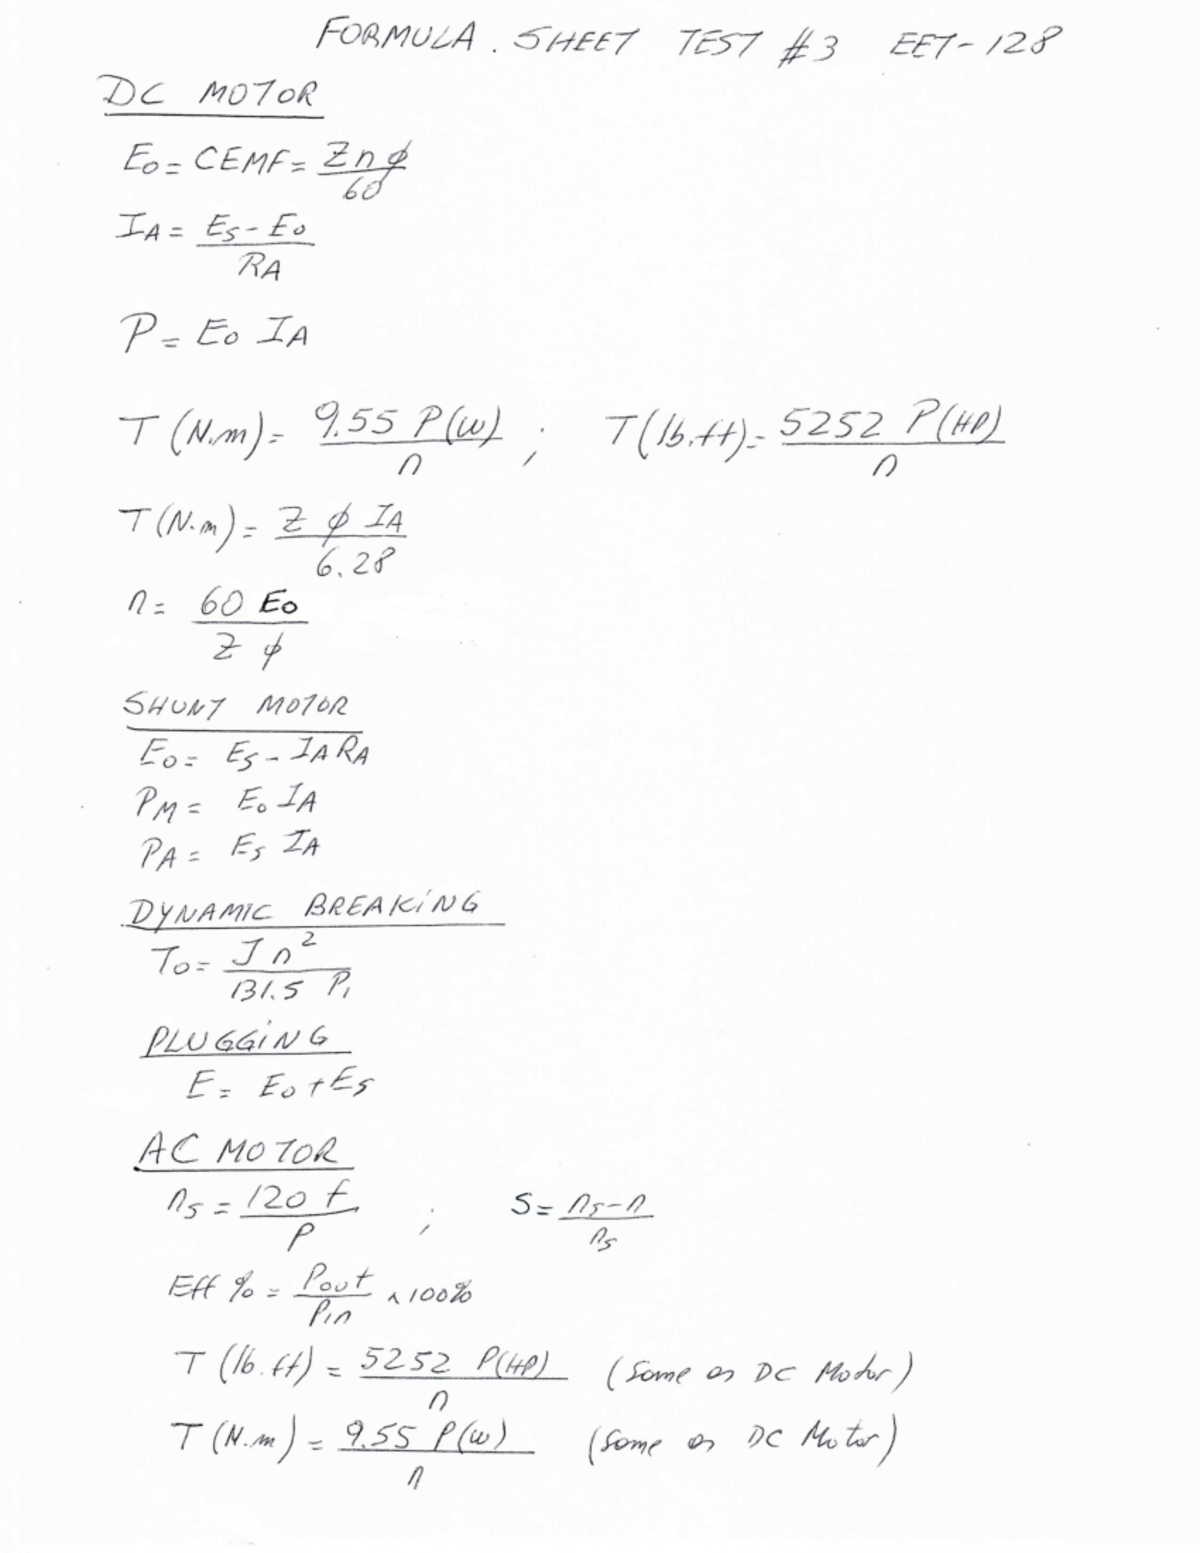 FORMULA . SHEET TEST #3 EET-128
DC MOTOR
E₀ = CEMF = Znϕ / 60
I_A = (E_S - E₀) / R_A
P = E₀ I_A
T (N.m) = 9.55 P(W) / n ; T(lb.ft) = 5252 P(HP) / n
T (N.m) = Z ϕ I_A / 6.28
n = 60 E₀ / Z ϕ
SHUNT MOTOR
E₀ = E_S - I_A R_A
P_M = E₀ I_A
P_A = E_S I_A
DYNAMIC BREAKING
T₀ = J n² / 131.5 P₁
PLUGGING
E = E₀ + E_S
AC MOTOR
n_S = 120 f / P ; S = (n_S - n) / n_S
Eff % = Pout / Pin x 100%
T (lb.ft) = 5252 P(HP) / n (Same as DC Motor)
T (N.m) = 9.55 P(W) / n (Same as DC Motor)